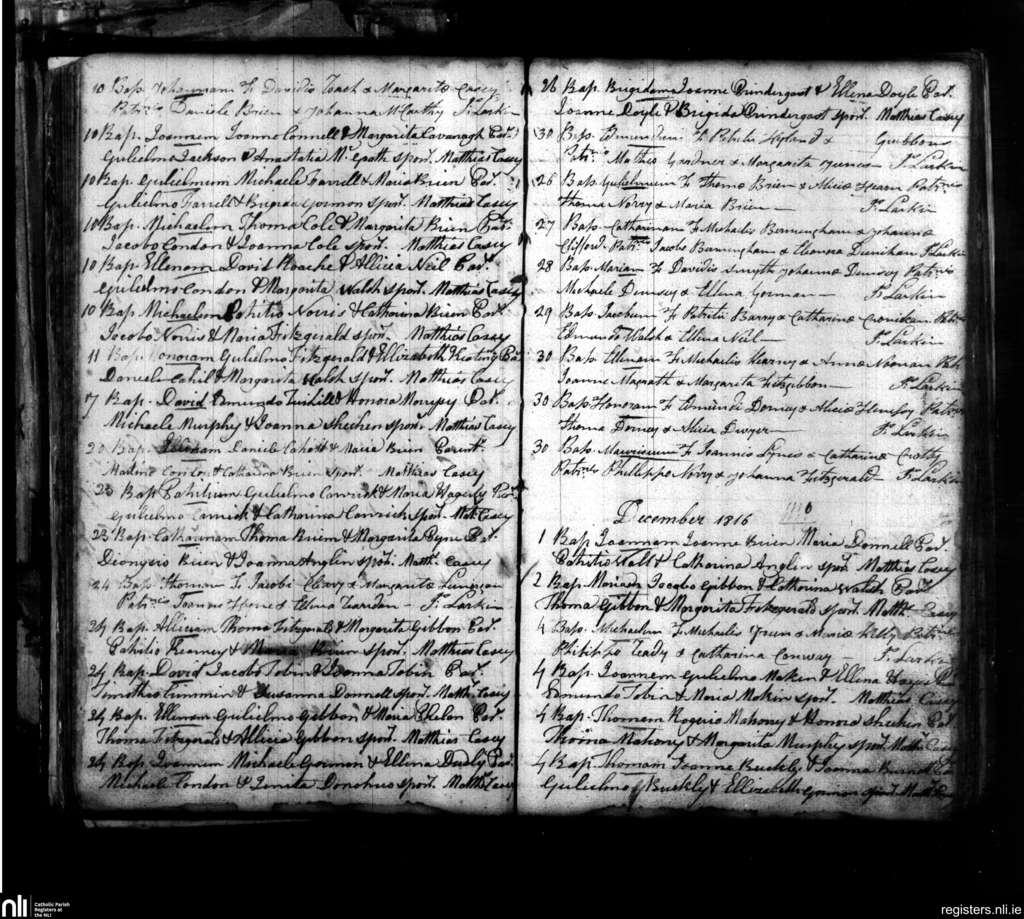 10 Bap. Johannam F. Davidis Roach & Margarita Casey
Patr.is Daniele Brien & Johanna McCarthy F. Larkin
10 Bap. Joannem Joanne Connell & Margarita Cavanagh Par.
Gulielmo Jackson & Anastatia Mc Grath spon. Matthias Casey
10 Bap. Gulielmum Michaele Farrell & Maria Brien Par.
Gulielmo Farrell & Brigida Gormon spon. Matthias Casey
10 Bap. Michaelem Thoma Cole & Margarita Brien Par.
Jacobo Condon & Joanna Cole spon. Matthias Casey
10 Bap. Ellenam David Roache & Allicia Neil Par.
Gulielmo Condon & Margarita Walsh spon. Matthias Casey
10 Bap. Michaelem Pahitio Norris & Catharina Brien Par.
Jacobo Norris & Maria Fitzgerald spon. Matthias Casey
11 Bap. Honoram Gulielmo Fitzgerald & Ellizabeth Keating Par.
Daniele Cahil & Margarita Walsh spon. Matthias Casey
17 Bap. David Edmundo Tuihill & Honora Par.
Michaele Murphy & Joanna Sheehen spon. Matthias Casey
20 Bap. Daniele & Maria Brien Parent.
Condon & Catharina Brien spon. Matthias Casey
23 Bap. Pahitium Gulielmo Conrick & Maria Par.
Gulielmo Conrick & Catharina Conrick spon. Mat. Casey
23 Bap. Catharinam Thoma Brien & Margarita Pyne Par.
Dionysio Brien & Joanna Anglin spon. Matth. Casey
24 Bap. Thomam F. Jacobi Cleary & Margarita
Patr.is Joanne & Ellena F. Larkin
24 Bap. Alliciam Thoma Fitzgerald & Margarita Gibbon Par.
Pahitio Kearney & Maria Brien spon. Matthias Casey
24 Bap. David Jacobo Tobin & Joanna Tobin Par.
Timotheo & Susanna Donnell spon. Matth. Casey
24 Bap. Ellenam Gulielmo Gibbon & Maria Phelan Par.
Thoma Fitzgerald & Allicia Gibbon spon. Matthias Casey
24 Bap. Joannem Michaele Gormon & Ellena Par.
Michaele Condon & Donohue spon. Matth. Casey
26 Bap. Brigidam Joanne Prindergast & Ellena Doyle Par.
Joanne Doyle & Brigida Prindergast spon. Matthias Casey
30 Bap. F. Patritii Hyland & Guibbons
Patri. Matheo Gardner & Margarita F. Larkin
26 Bap. Gulielmum F. Thoma Brien & Alicia Patr.is
Thoma Norry & Maria Brien — F. Larkin
27 Bap. Catharinam F. Michaelis Bermingham & Johanna
Clifford Patr. Jacobo Bermingham & Eleonora F. Larkin
28 Bap. Mariam F. Davidis Smyth Johanna Dempsey Patr.is
Michaele Dempsey & Ellena Gorman — F. Larkin
29 Bap. Jacobum F. Patritii Barry & Catharina Patr.
Edmundo Walsh & Ellena Neil — F. Larkin
30 Bap. Ellenam F. Michaelis Kearney & Anna Noonan Patr.
Joanne Magrath & Margarita Fitzgibbon — F. Larkin
30 Bap. Honoram F. Edmundi & Alicia Patr.is
Thoma & Alicia Dwyer — F. Larkin
30 Bap. Mauritium F. Joannis & Catharina Crotty
Patr.is Philippo Nory & Johanna Fitzgerald — F. Larkin
December 1816
1 Bap. Joannam Joanne Brien Maria Donnell Par.
Pahitio & Catharina Anglin spon. Matthias Casey
2 Bap. Mariam Jacobo Gibbon & Catharina Walsh Par.
Thoma Gibbon & Margarita Fitzgerald spon. Matth. Casey
4 Bap. Michaelem F. Michaelis & Maria Patr.is
Philippo & Catharina Conway — F. Larkin
4 Bap. Joannem Gulielmo Makin & Ellena Par.
Edmundo Tobin & Maria Makin spon. Matthias Casey
4 Bap. Thomam Rogerio Mahony & Honora Sheehen Par.
Thoma Mahony & Margarita Murphy spon. Matth. Casey
4 Bap. Thomam Joanne Buckly & Joanna Par.
Gulielmo Buckly & Ellizabeth Gormon spon. Matth. Casey
nli
Catholic Parish
Registers at
the NLI
registers.nli.ie